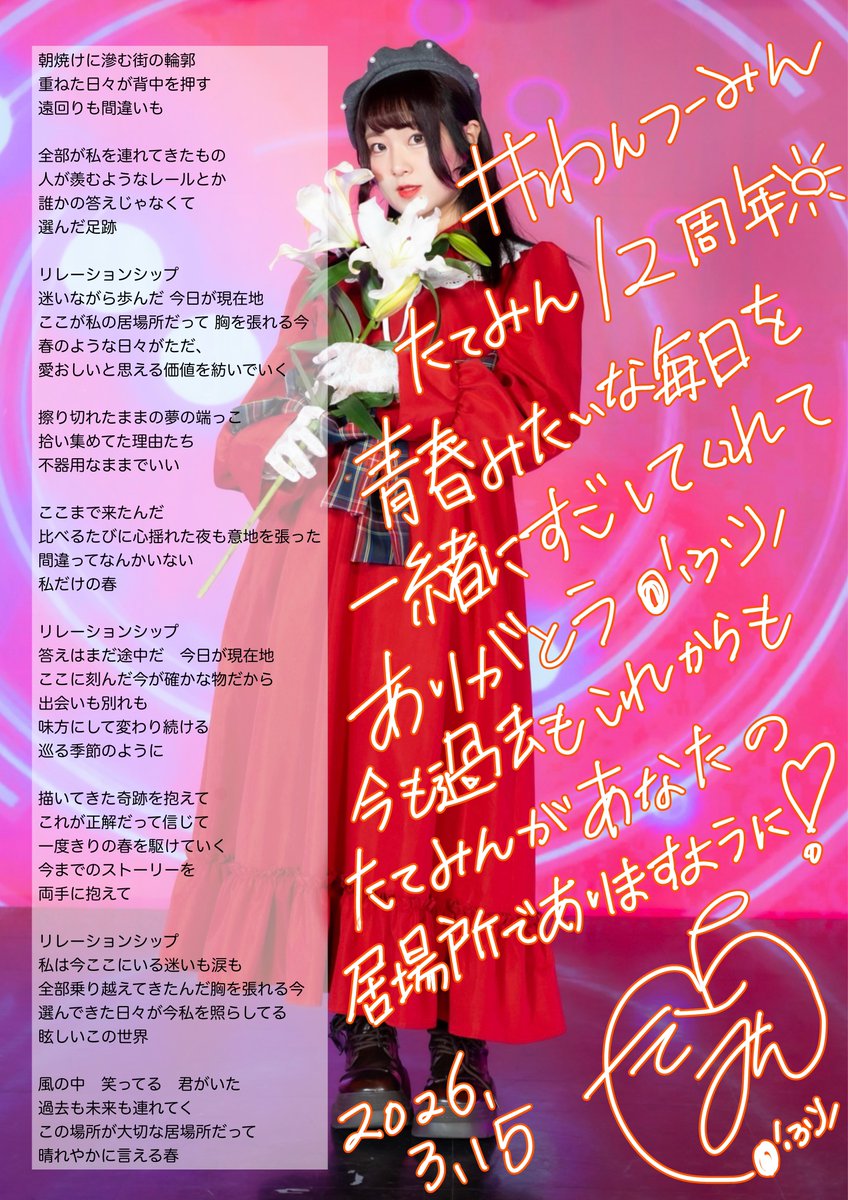 朝焼けに滲む街の輪郭
重ねた日々が背中を押す
遠回りも間違いも
全部が私を連れてきたもの
人が羨むようなレールとか
誰かの答えじゃなくて
選んだ足跡
リレーションシップ
迷いながら歩んだ 今日が現在地
ここが私の居場所だって 胸を張れる今
春のような日々がただ、
愛おしいと思える価値を紡いでいく
擦り切れたままの夢の端っこ
拾い集めてた理由たち
不器用なままでいい
ここまで来たんだ
比べるたびに心揺れた夜も意地を張った
間違ってなんかいない
私だけの春
リレーションシップ
答えはまだ途中だ　今日が現在地
ここに刻んだ今が確かな物だから
出会いも別れも
味方にして変わり続ける
巡る季節のように
描いてきた奇跡を抱えて
これが正解だって信じて
一度きりの春を駆けていく
今までのストーリーを
両手に抱えて
リレーションシップ
私は今ここにいる迷いも涙も
全部乗り越えてきたんだ胸を張れる今
選んできた日々が今私を照らしてる
眩しいこの世界
風の中　笑ってる　君がいた
過去も未来も連れてく
この場所が大切な居場所だって
晴れやかに言える春
#わんつーみん
たてみん12周年
青春みたいな毎日を
一緒にすごしてくれて
ありがとう
今も過去もこれからも
たてみんがあなたの
居場所でありますように♡
2026.
3.15